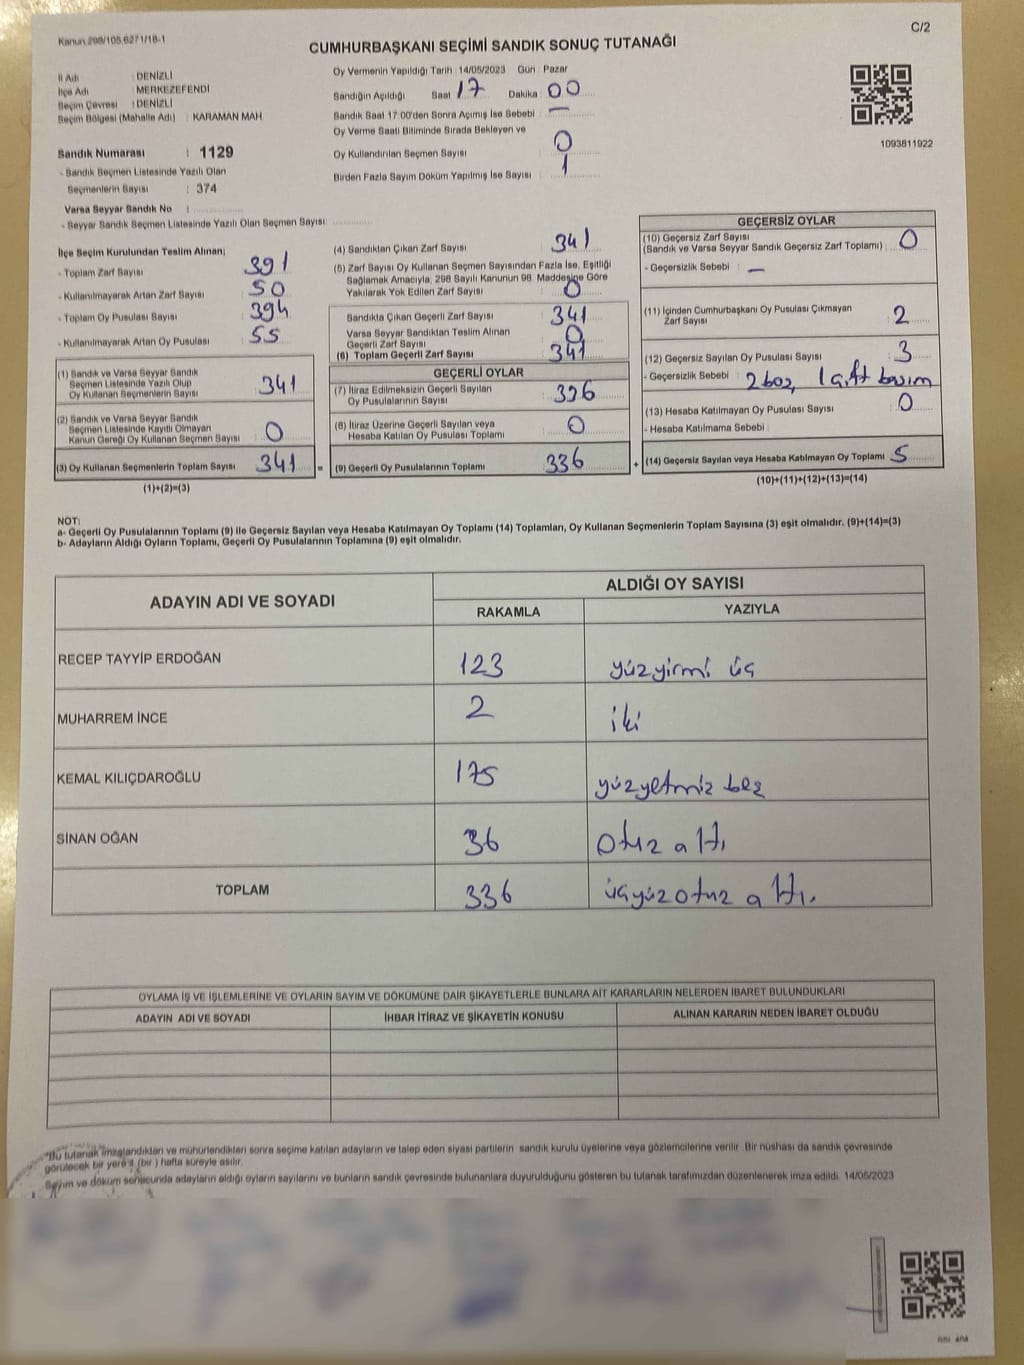 Kanun:298/105,6271/18-1
C/2
CUMHURBAŞKANI SEÇİMİ SANDIK SONUÇ TUTANAĞI
İl Adı : DENİZLİ
İlçe Adı : MERKEZEFENDİ
Seçim Çevresi : DENİZLİ
Seçim Bölgesi (Mahalle Adı) : KARAMAN MAH.
Oy Vermenin Yapıldığı Tarih :14/05/2023 Gün : Pazar
Sandığın Açıldığı Saat : 17 Dakika : 00
Sandık Saat 17:00'den Sonra Açımış İse Sebebi : —
Oy Verme Saati Bitiminde Sırada Bekleyen ve
Oy Kullandırılan Seçmen Sayısı : 0
Birden Fazla Sayım Döküm Yapılmış İse Sayısı : 1
1093811922
Sandık Numarası : 1129
- Sandık Seçmen Listesinde Yazılı Olan
Seçmenlerin Sayısı : 374
Varsa Seyyar Sandık No :
- Seyyar Sandık Seçmen Listesinde Yazılı Olan Seçmen Sayısı:
İlçe Seçim Kurulundan Teslim Alınan;
- Toplam Zarf Sayısı : 391
- Kullanılmayarak Artan Zarf Sayısı : 50
- Toplam Oy Pusulası Sayısı : 394
- Kullanılmayarak Artan Oy Pusulası : 55
(1) Sandık ve Varsa Seyyar Sandık
Seçmen Listesinde Yazılı Olup
Oy Kullanan Seçmenlerin Sayısı : 341
(2) Sandık ve Varsa Seyyar Sandık
Seçmen Listesinde Kayıtlı Olmayan
Kanun Gereği Oy Kullanan Seçmen Sayısı : 0
(3) Oy Kullanan Seçmenlerin Toplam Sayısı : 341
(1)+(2)=(3)
(4) Sandıktan Çıkan Zarf Sayısı : 341
(5) Zarf Sayısı Oy Kullanan Seçmen Sayısından Fazla İse, Eşitliği
Sağlamak Amacıyla, 298 Sayılı Kanunun 98. Maddesine Göre
Yakılarak Yok Edilen Zarf Sayısı : 0
Sandıkta Çıkan Geçerli Zarf Sayısı : 341
Varsa Seyyar Sandıktan Teslim Alınan
Geçerli Zarf Sayısı : 0
(6) Toplam Geçerli Zarf Sayısı : 341
GEÇERLİ OYLAR
(7) İtiraz Edilmeksizin Geçerli Sayılan
Oy Pusulalarının Sayısı : 336
(8) İtiraz Üzerine Geçerli Sayılan veya
Hesaba Katılan Oy Pusulası Toplamı : 0
= (9) Geçerli Oy Pusulalarının Toplamı : 336
GEÇERSİZ OYLAR
(10) Geçersiz Zarf Sayısı
(Sandık ve Varsa Seyyar Sandık Geçersiz Zarf Toplamı) : 0
- Geçersizlik Sebebi : —
(11) İçinden Cumhurbaşkanı Oy Pusulası Çıkmayan
Zarf Sayısı : 2
(12) Geçersiz Sayılan Oy Pusulası Sayısı : 3
- Geçersizlik Sebebi : 2 boş, 1 çift basım
(13) Hesaba Katılmayan Oy Pusulası Sayısı : 0
- Hesaba Katılmama Sebebi :
+ (14) Geçersiz Sayılan veya Hesaba Katılmayan Oy Toplamı : 5
(10)+(11)+(12)+(13)=(14)
NOT:
a- Geçerli Oy Pusulalarının Toplamı (9) ile Geçersiz Sayılan veya Hesaba Katılmayan Oy Toplamı (14) Toplamları, Oy Kullanan Seçmenlerin Toplam Sayısına (3) eşit olmalıdır. (9)+(14)=(3)
b- Adayların Aldığı Oyların Toplamı, Geçerli Oy Pusulalarının Toplamına (9) eşit olmalıdır.
ADAYIN ADI VE SOYADI
ALDIĞI OY SAYISI
RAKAMLA YAZIYLA
RECEP TAYYİP ERDOĞAN 123 yüzyirmi üç
MUHARREM İNCE 2 iki
KEMAL KILIÇDAROĞLU 175 yüzyetmiz bez
SİNAN OĞAN 36 otuz altı
TOPLAM 336 üçyüzotuz altı.
OYLAMA İŞ VE İŞLEMLERİNE VE OYLARIN SAYIM VE DÖKÜMÜNE DAİR ŞİKAYETLERLE BUNLARA AİT KARARLARIN NELERDEN İBARET BULUNDUKLARI
ADAYIN ADI VE SOYADI İHBAR İTİRAZ VE ŞİKAYETİN KONUSU ALINAN KARARIN NEDEN İBARET OLDUĞU
"Bu tutanak imzalandıktan ve mühürlendikten sonra seçime katılan adayların ve talep eden siyasi partilerin sandık kurulu üyelerine veya gözlemcilerine verilir. Bir nüshası da sandık çevresinde
görülecek bir yere 1 (bir ) hafta süreyle asılır.
Sayım ve döküm sonucunda adayların aldığı oyların sayılarını ve bunların sandık çevresinde bulunanlara duyurulduğunu gösteren bu tutanak tarafımızdan düzenlenerek imza edildi. 14/05/2023